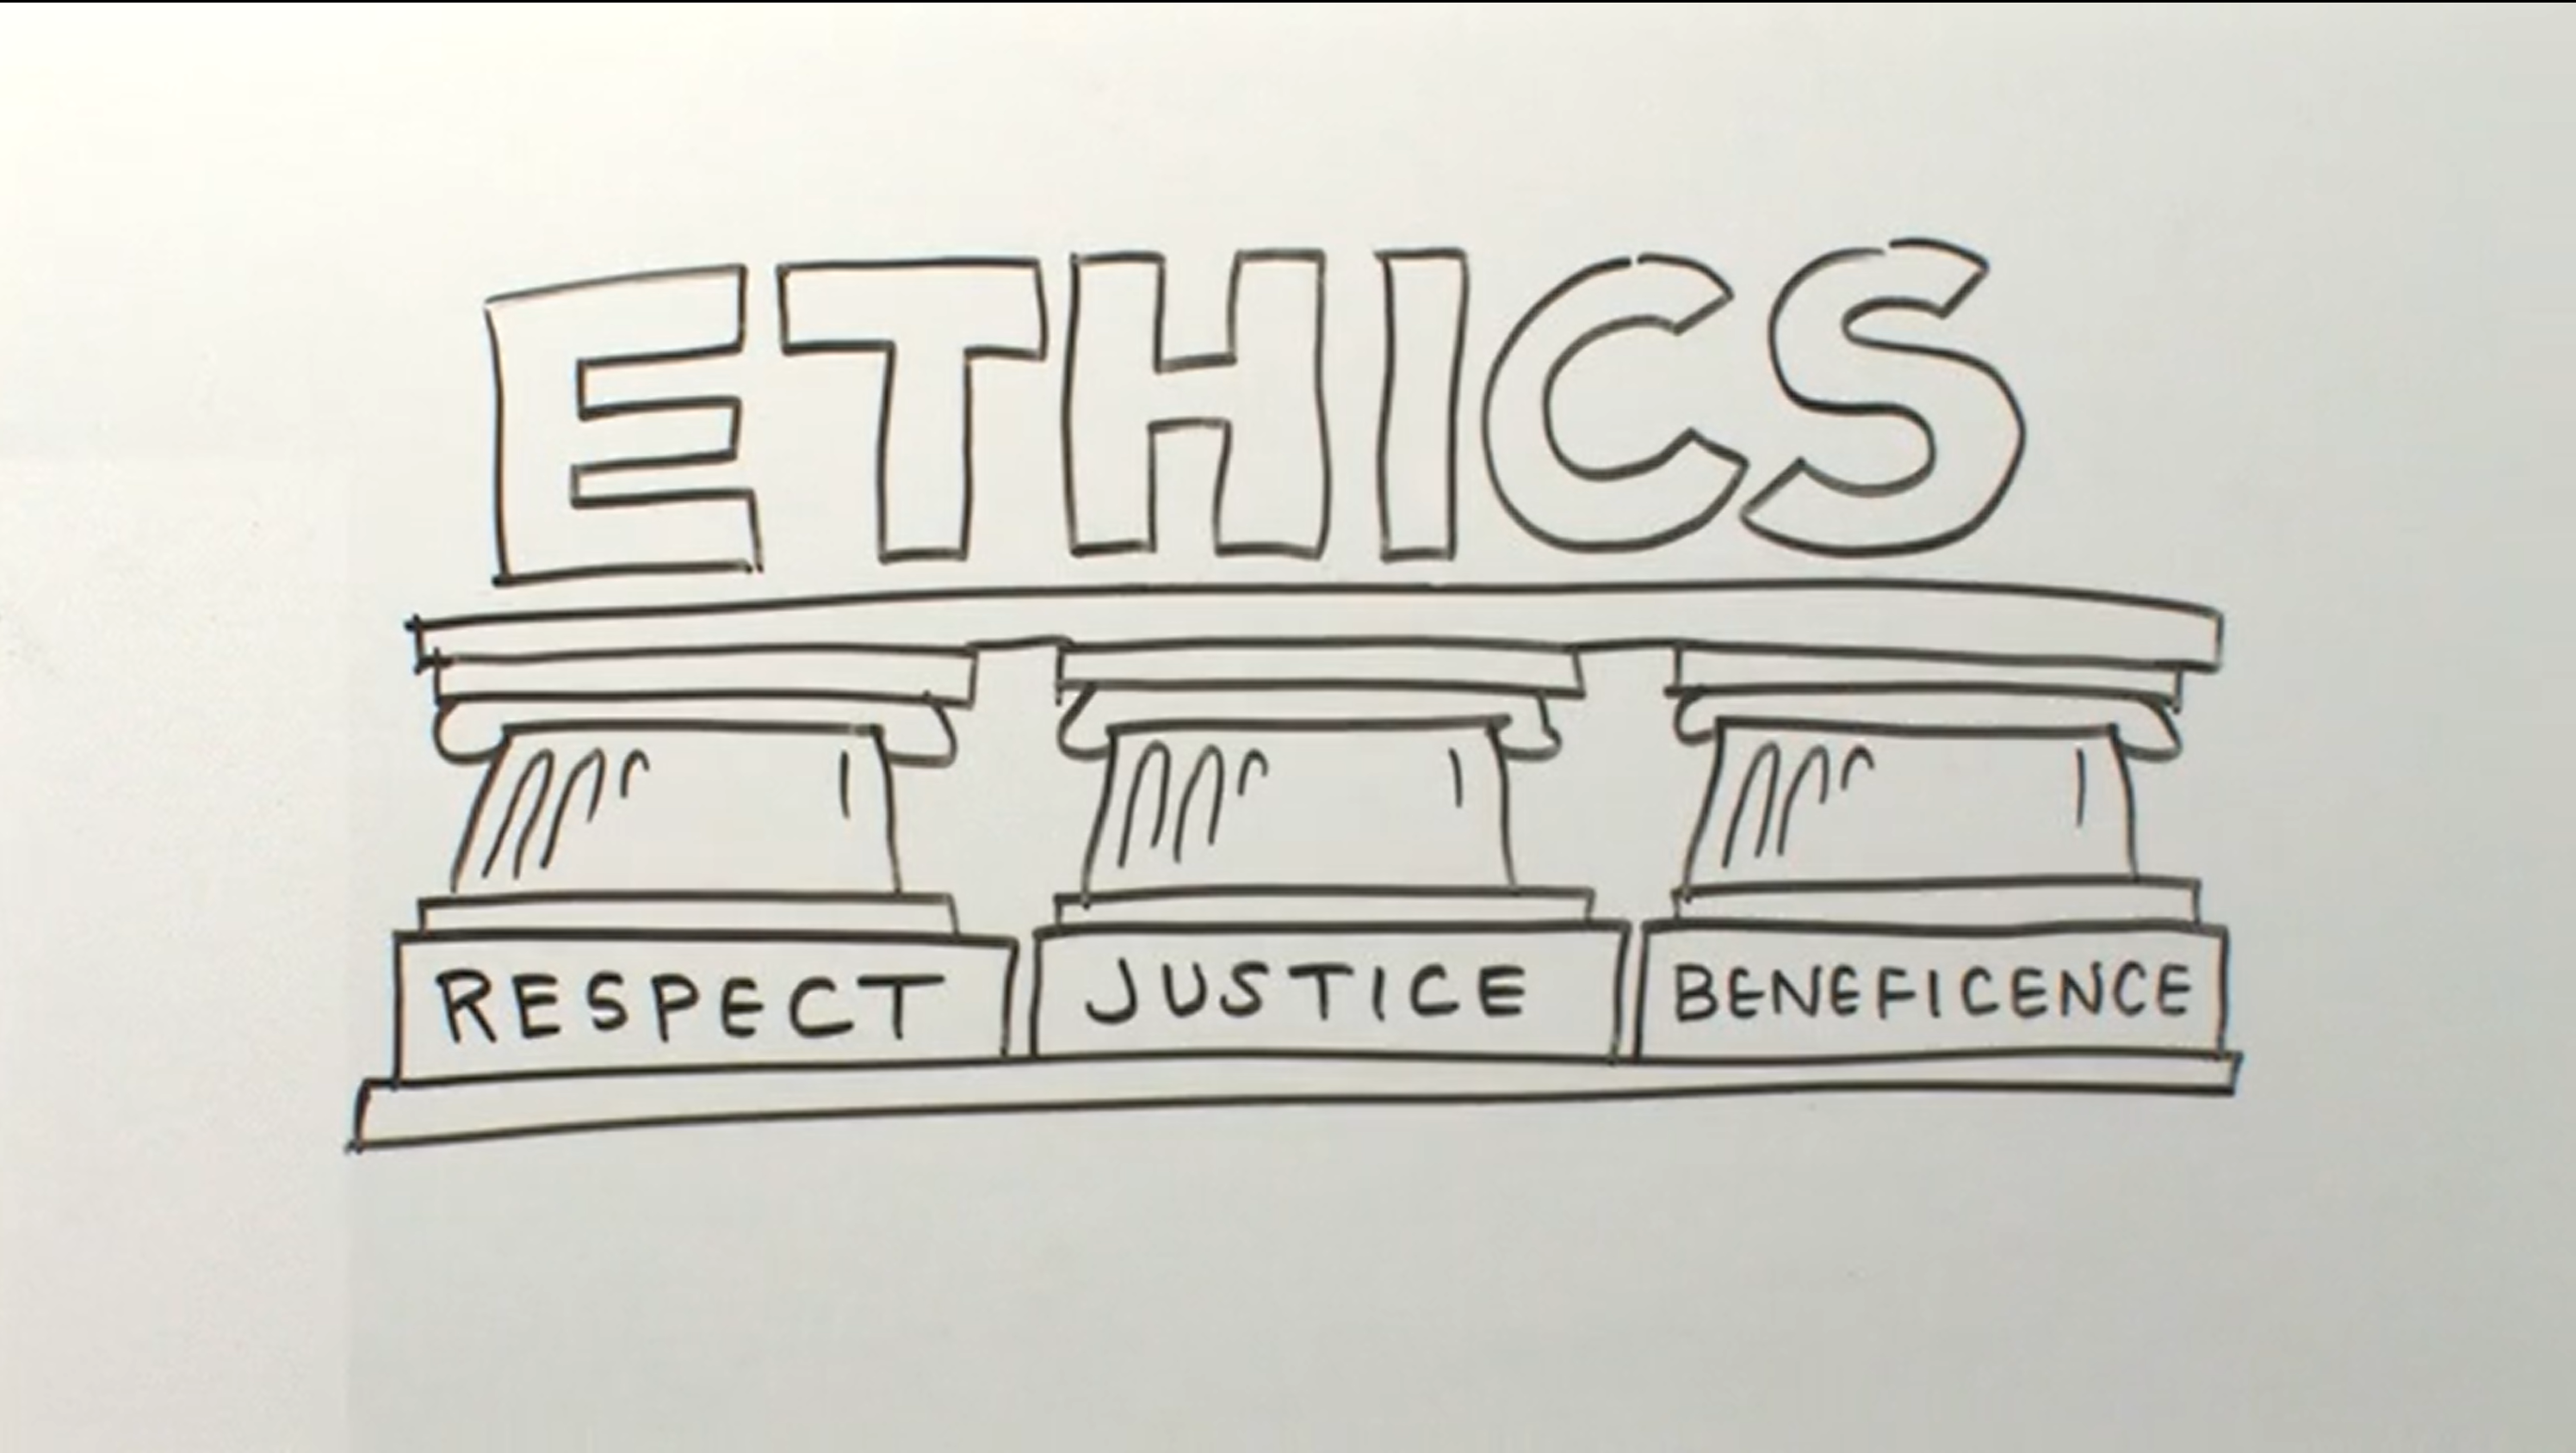 ETHICS
RESPECT JUSTICE BENEFICENCE